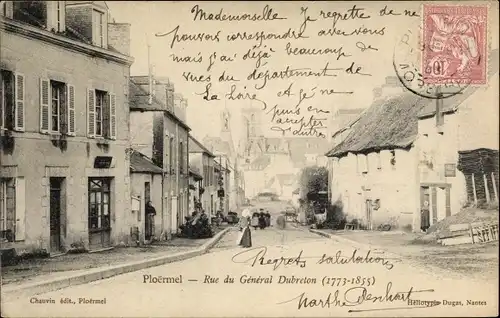 Mademoselle, Je regrette de ne
pouvoir correspondre avec vous
mais j'ai déjà beaucoup de
vues du département de
La Loire, et je n'en
puis accepter
d'autres
10
Ploërmel — Rue du Général Dubreton (1773-1855)
Regrets, salutations
Marthe
Chauvin édit., Ploërmel
Héliotypie Dugas, Nantes